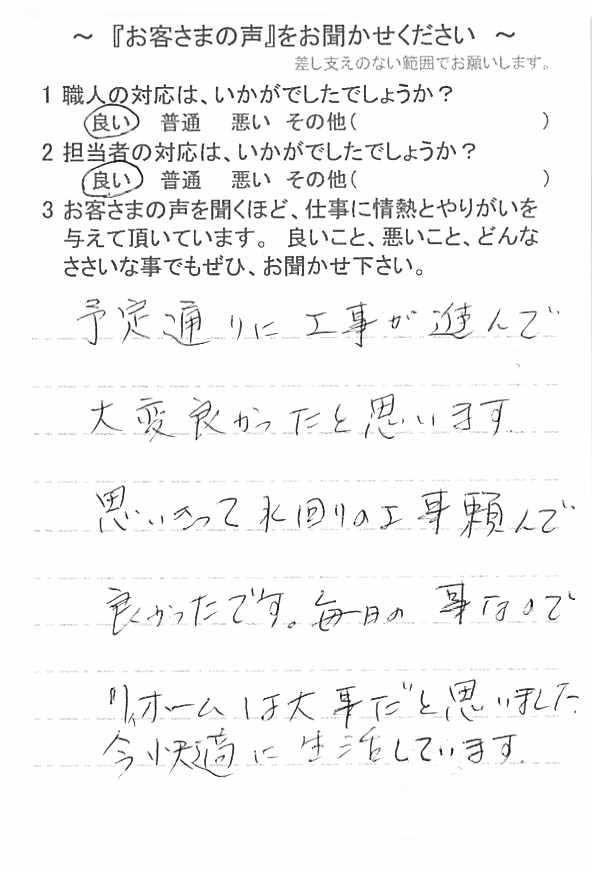 ～ 『お客さまの声』をお聞かせください ～
差し支えのない範囲でお願いします。
1 職人の対応は、いかがでしたでしょうか？
良い 普通 悪い その他( )
2 担当者の対応は、いかがでしたでしょうか？
良い 普通 悪い その他( )
3 お客さまの声を聞くほど、仕事に情熱とやりがいを
与えて頂いています。 良いこと、悪いこと、どんな
ささいな事でもぜひ、お聞かせ下さい。
予定通りに工事が進んで
大変良かったと思います.
思いきって水回りの工事頼んで
良かったです。毎日の事なので
リィホームは大事だと思いました.
今快適に生活しています.